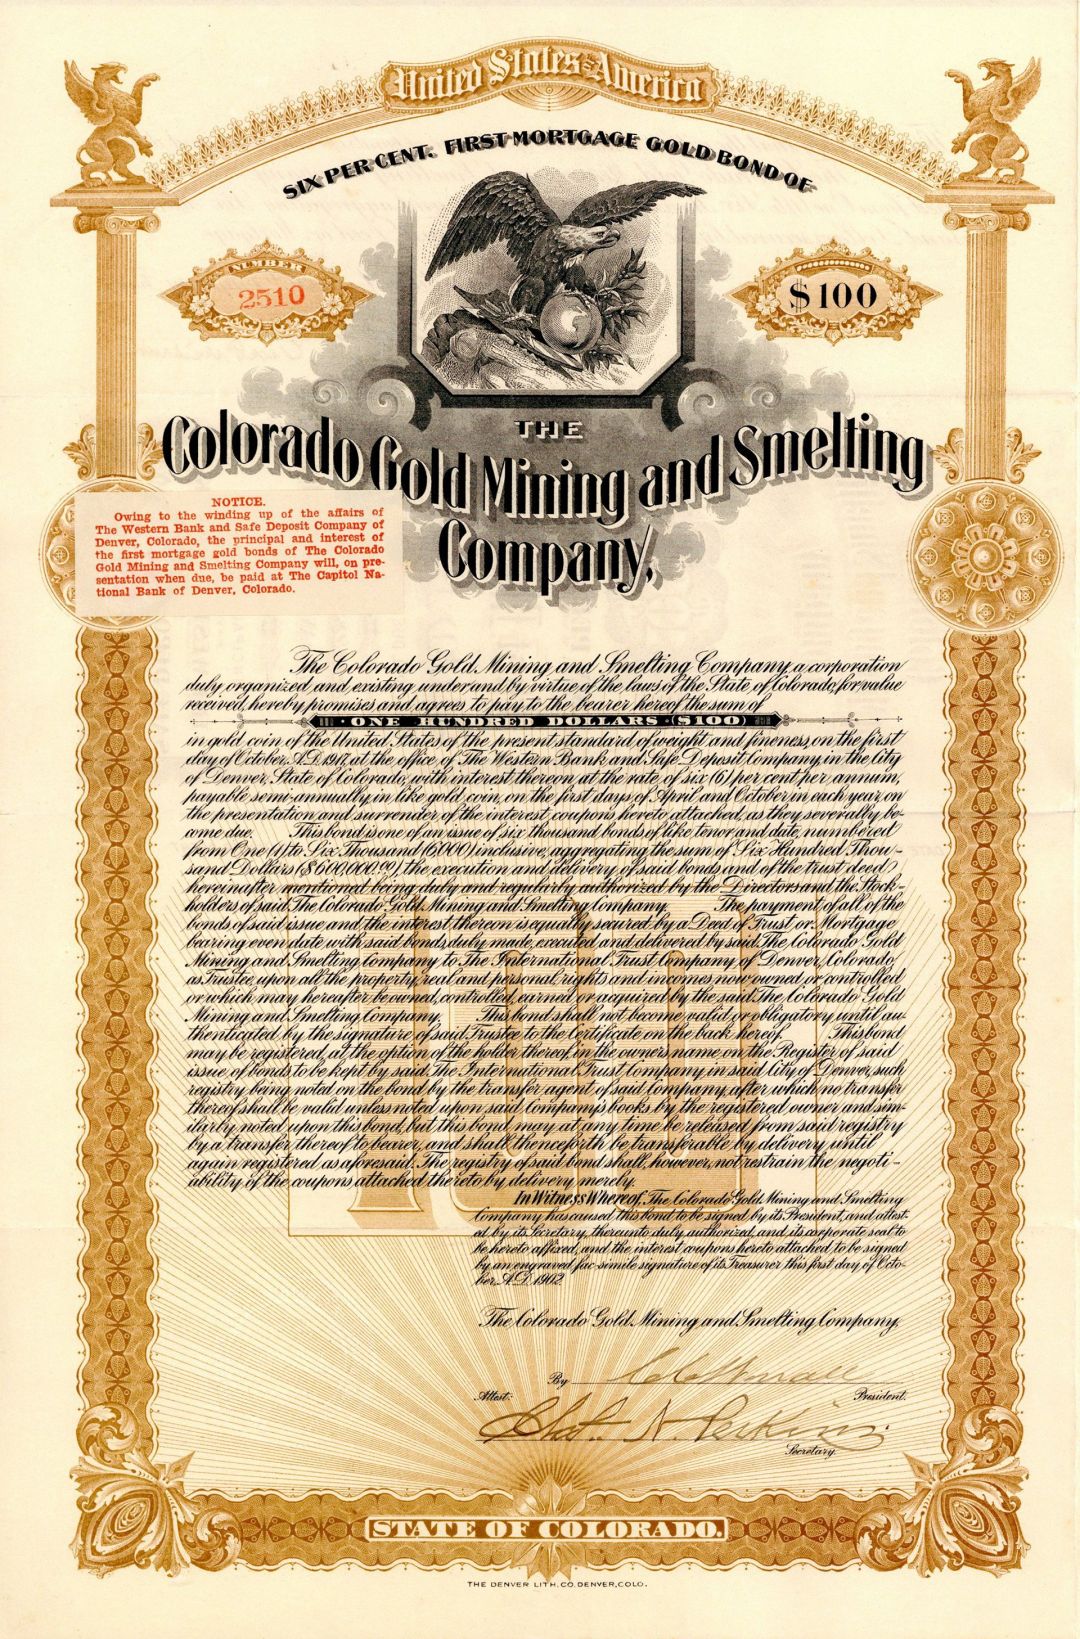 United States of America
SIX PER CENT. FIRST MORTGAGE GOLD BOND OF
NUMBER
2510
$100
THE
Colorado Gold Mining and Smelting
Company,
NOTICE.
Owing to the winding up of the affairs of
The Western Bank and Safe Deposit Company of
Denver, Colorado, the principal and interest of
the first mortgage gold bonds of The Colorado
Gold Mining and Smelting Company will, on pre-
sentation when due, be paid at The Capitol Na-
tional Bank of Denver, Colorado.
The Colorado Gold Mining and Smelting Company, a corporation
duly organized and existing under and by virtue of the laws of the State of Colorado, for value
received, hereby promises and agrees to pay to the bearer hereof the sum of
ONE HUNDRED DOLLARS ($100)
in gold coin of the United States of the present standard of weight and fineness, on the first
day of October, A.D. 1917, at the office of The Western Bank and Safe Deposit Company, in the City
of Denver, State of Colorado, with interest thereon at the rate of six (6) per cent per annum,
payable semi-annually, in like gold coin, on the first days of April and October in each year, on
the presentation and surrender of the interest coupons hereto attached, as they severally be-
come due. This bond is one of an issue of six thousand bonds of like tenor and date, numbered
from One (1) to Six Thousand (6,000) inclusive, aggregating the sum of Six Hundred Thou-
sand Dollars ($600,000.00), the execution and delivery of said bonds and of the trust deed
hereinafter mentioned being duly and regularly authorized by the Directors and the Stock-
holders of said The Colorado Gold Mining and Smelting Company. The payment of all of the
bonds of said issue and the interest thereon is equally secured by a Deed of Trust or Mortgage
bearing even date with said bonds, duly made, executed and delivered by said The Colorado Gold
Mining and Smelting Company to The International Trust Company of Denver, Colorado,
as Trustee, upon all the property, real and personal, rights and incomes now owned or controlled
or which may hereafter be owned, controlled, earned or acquired by the said The Colorado Gold
Mining and Smelting Company. This bond shall not become valid or obligatory until au-
thenticated by the signature of said Trustee to the Certificate on the back hereof. This bond
may be registered, at the option of the holder thereof, in the owner's name on the Register of said
issue of bonds to be kept by said The International Trust Company in said City of Denver, such
registry being noted on the bond by the transfer agent of said Company, after which no transfer
thereof shall be valid unless noted upon said Company's books by the registered owner and sim-
ilarly noted upon this bond, but this bond may at any time be released from said registry
by a transfer thereof to bearer, and shall thenceforth be transferable by delivery until
again registered as aforesaid. The registry of said bond shall, however, not restrain the negoti-
ability of the coupons attached thereto by delivery merely.
In Witness Whereof, The Colorado Gold Mining and Smelting
Company has caused this bond to be signed by its President, and attest-
ed by its Secretary, thereunto duly authorized, and its corporate seal to
be hereto affixed, and the interest coupons hereto attached, to be signed
by an engraved fac-simile signature of its Treasurer this first day of Octo-
ber, A.D. 1902.
The Colorado Gold Mining and Smelting Company,
By
Attest: President.
Chas. N. Perkins
Secretary.
STATE OF COLORADO.
THE DENVER LITH. CO. DENVER, COLO.